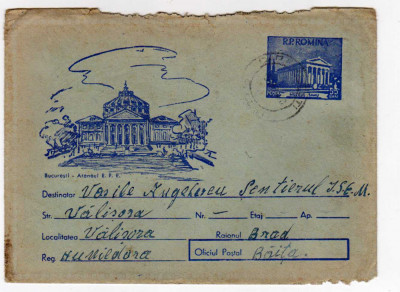 R.P.ROMINA
București - Ateneul R. P. R.
Destinatar Vasile Angelescu Șentierul I.S.E.M.
Str. Vălișora Nr. — Etaj Ap.
Localitatea Vălișora Raionul Brad
Reg. Hunedoara Oficiul Poștal Băița.